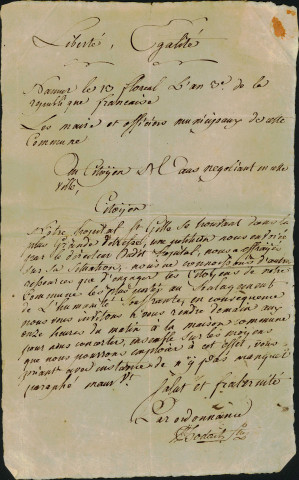 Liberté, Egalité
Namur le 13 floreal L'an 3e de la
republique francaise
Les maire et officiers municipaux de cette
Commune
Au Citoyen negotiant en cette
ville
Citoyen
Notre hospital St Gille se trouvant dans la
plus Grande detresse, une petition nous
par le directeur dudit hopital, nous a
sur sa situation, nous ne connoissons d'autre
ressources que d'engager les Citoyens de notre
Commune les plus au
de L'humanité souffrante, en consequence
nous vous invitons à vous rendre demain aux
onze heures du matin à la maison commune
pour vous concerter, ensemble sur les moyens
que nous pourrons employer à cet effet, vous
priant avec instance de n'y pas manquer
paraphé
Salut et fraternité
Par ordonnance